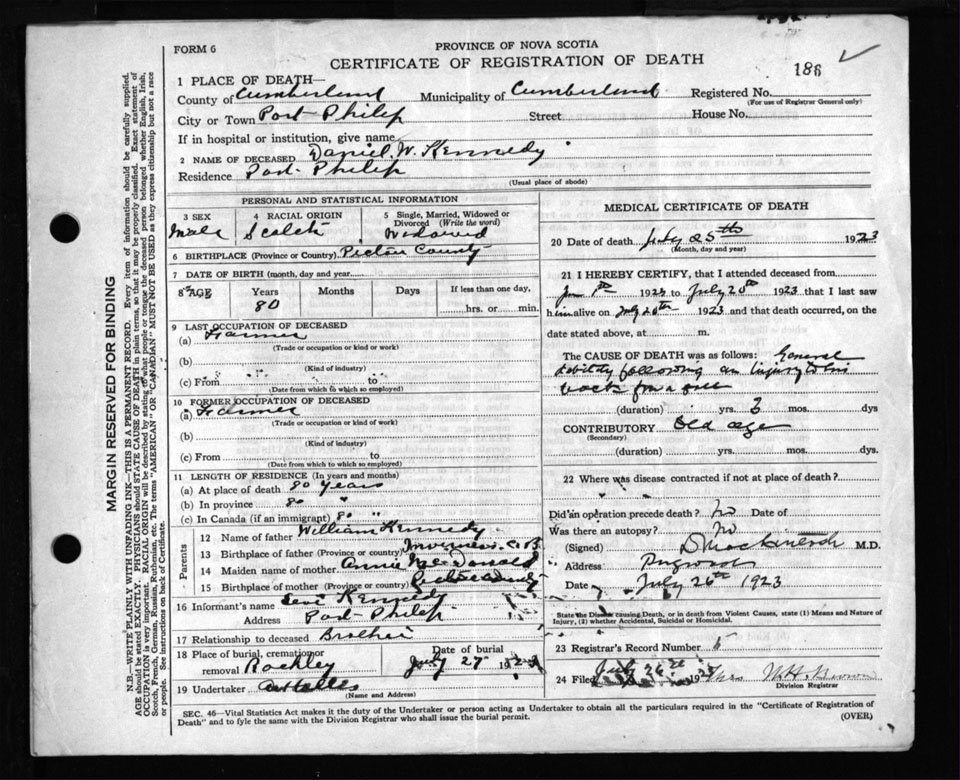 FORM 6
PROVINCE OF NOVA SCOTIA
CERTIFICATE OF REGISTRATION OF DEATH
186
1 PLACE OF DEATH—
County of Cumberland Municipality of Cumberland Registered No.
(For use of Registrar General only)
City or Town Port Philip Street House No.
If in hospital or institution, give name
2 NAME OF DECEASED Daniel W. Kennedy
Residence Port Philip
(Usual place of abode)
PERSONAL AND STATISTICAL INFORMATION
3 SEX 4 RACIAL ORIGIN 5 Single, Married, Widowed or Divorced (Write the word)
Male Scotch Widowed
6 BIRTHPLACE (Province or Country) Pictou County
7 DATE OF BIRTH (month, day and year)
8 AGE Years Months Days If less than one day,
80 hrs. or min.
9 LAST OCCUPATION OF DECEASED
(a) Farmer
(Trade or occupation or kind or work)
(b)
(Kind of industry)
(c) From to
(Date from which to which so employed)
10 FORMER OCCUPATION OF DECEASED
(a) Farmer
(Trade or occupation or kind of work)
(b)
(Kind of industry)
(c) From to
(Date from which to which so employed)
11 LENGTH OF RESIDENCE (In years and months)
(a) At place of death 80 years
(b) In province 80 "
(c) In Canada (if an immigrant) 80 "
Parents
12 Name of father William Kennedy
13 Birthplace of father (Province or country) Inverness C. B.
14 Maiden name of mother Annie McDonald
15 Birthplace of mother (Province or country) Pictou County
16 Informant's name Levi Kennedy
Address Port Philip
17 Relationship to deceased Brother
18 Place of burial, cremation or removal Rockley
Date of burial July 27 192
19 Undertaker
(Name and Address)
MEDICAL CERTIFICATE OF DEATH
20 Date of death July 25th 1923
(Month, day and year)
21 I HEREBY CERTIFY, that I attended deceased from
Jan 1st 1923 to July 20th 1923 that I last saw
him alive on July 20th 1923 and that death occurred, on the
date stated above, at m.
The CAUSE OF DEATH was as follows: General
debility following an injury to his
back from a fall
(duration) yrs. 3 mos. dys
CONTRIBUTORY Old age
(Secondary)
(duration) yrs. mos. dys.
22 Where was disease contracted if not at place of death?
Did an operation precede death? No Date of
Was there an autopsy? No
(Signed) D Mackintosh M.D.
Address Pugwash
Date July 26th 1923
State the Disease causing Death, or in death from Violent Causes, state (1) Means and Nature of Injury, (2) whether Accidental, Suicidal or Homicidal.
23 Registrar's Record Number
24 Filed July 26th 192
Division Registrar
SEC. 46—Vital Statistics Act makes it the duty of the Undertaker or person acting as Undertaker to obtain all the particulars required in the "Certificate of Registration of
Death" and to fyle the same with the Division Registrar who shall issue the burial permit.
(OVER)
MARGIN RESERVED FOR BINDING
N.B.—WRITE PLAINLY WITH UNFADING INK—THIS IS A PERMANENT RECORD. Every item of information should be carefully supplied.
AGE should be stated EXACTLY. PHYSICIANS should STATE CAUSE OF DEATH in plain terms, so that it may be properly classified. Exact statement of
OCCUPATION is very important. RACIAL ORIGIN will be described by stating to what people or tongue the deceased person belonged whether English, Irish,
Scotch, French, German, Russian, Ruthenian, etc. The terms "AMERICAN" OR "CANADIAN" MUST NOT BE USED as they express citizenship but not a race
or people. See instructions on back of Certificate.